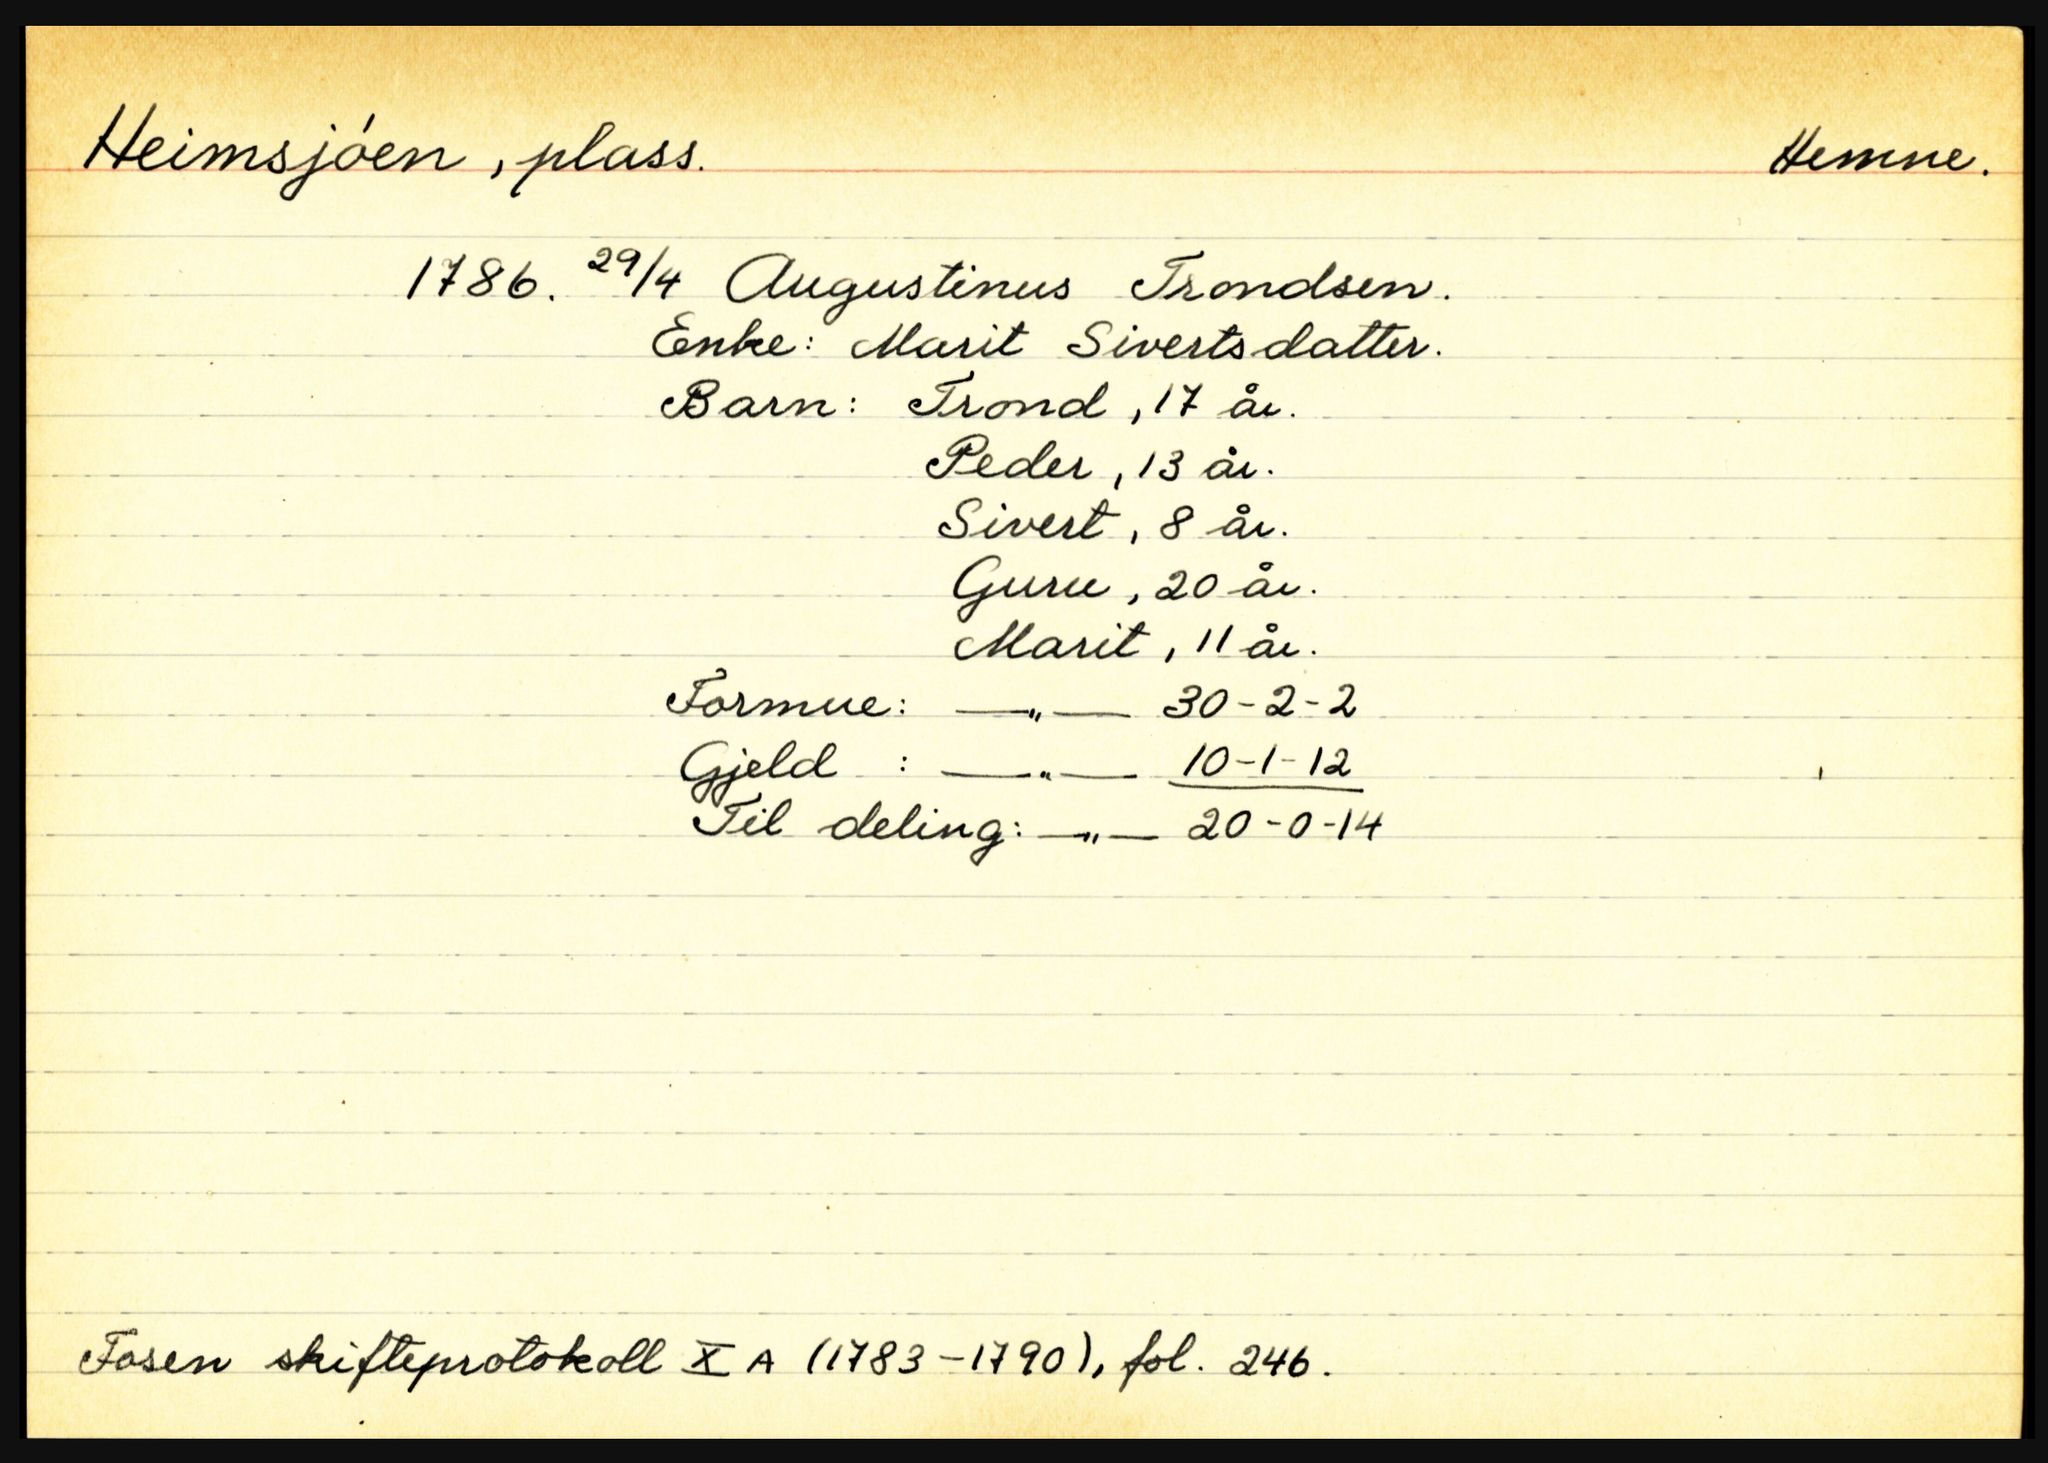 Heimsjóen, plass.
Hemne.
1786. 29/4 Augustinus Trondsen.
Enke: Marit Sivertsdatter.
Barn: Trond, 17 år.
Peder, 13 år.
Sivert, 8 år.
Guru, 20 år.
Marit, 11 år.
Formue: —„— 30-2-2
Gjeld : —„— 10-1-12
Til deling: —„— 20-0-14
Fosen skifteprotokoll X A (1783-1790), fol. 246.